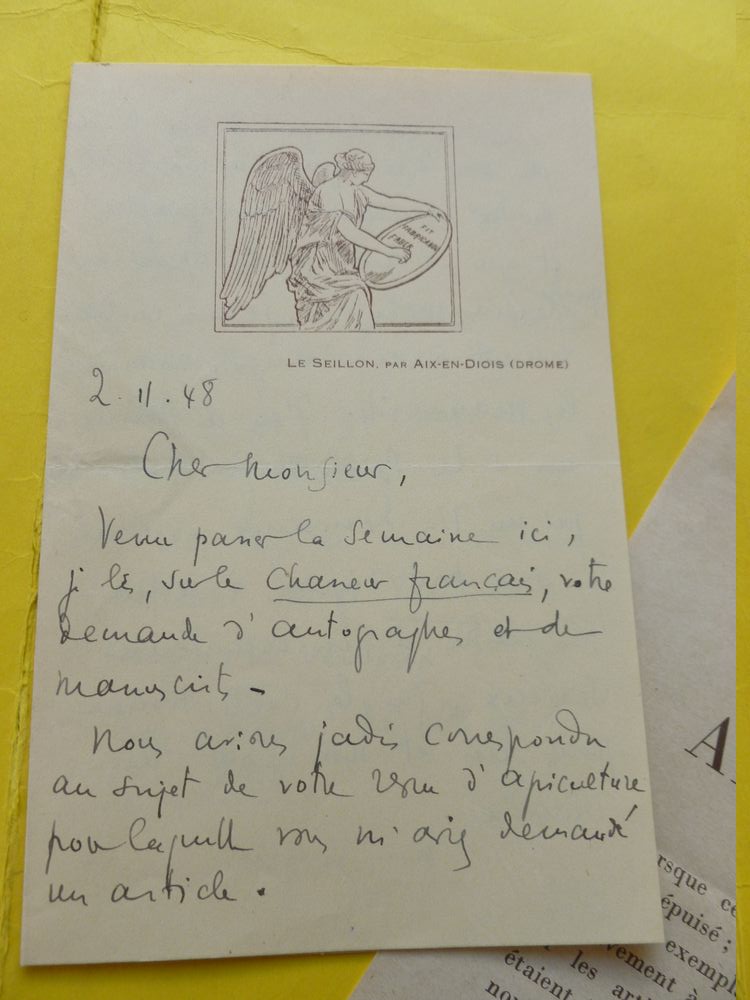 FIT
FABRICANDO
FABER
LE SEILLON, PAR AIX-EN-DIOIS (DROME)
2.11.48
Cher Monsieur,
Venu passer la semaine ici,
je lis, sur le Chasseur français, votre
demande d'autographes et de
manuscrits -
Nous avions jadis correspondu
au sujet de votre revue d'apiculture
pour laquelle vous m'aviez demandé
un article.
A
rsque ce
épuisé ;
exempl
vement à
les art
étaient
nou